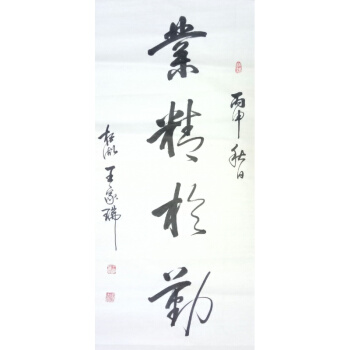 丙申秋日
業精於勤
王家瑞